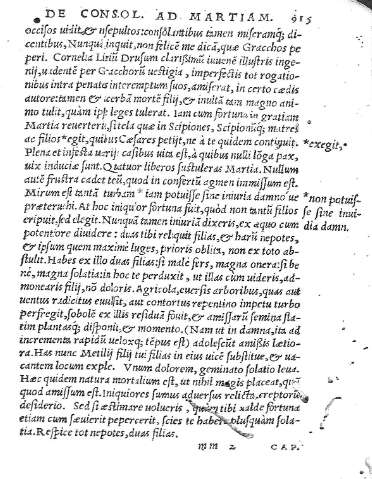 DE CONSOL. AD MARTIAM. 915
occisos uidit, & insepultos: consolantibus tamen miseramq; di-
centibus, Nunquā inquit, non felicē me dicā, quæ Gracchos pe
peri. Cornelia Liuii Drusum clarissimū iuuenē illustris inge-
nij, uadentē per Gracchorū uestigia, imperfectis tot rogatio-
nibus intra penates interemptum suos, amiserat, in certo cædis
autore: tamen & acerbā mortē filij, & inultā tam magno ani-
mo tulit, quàm ipse leges tulerat. Iam cum fortuna in gratiam
Martia reuerteris, si tela quæ in Scipiones, Scipionūq; matres
ac filios *egit, quibus Cæsares petijt, ne à te quidem continuit. *exegit,*
Plena et infesta uarijs casibus uita est, à quibus nulli lōga pax,
uix induciæ sunt. Quatuor liberos sustuleras Martia. Nullum
aiūt frustra cadere telū, quod in confertū agmen immissum est.
Mirum est tantā turbam * tam potuisse sine iniuria damno ue *non potuis-
præteruehi. At hoc iniquior fortuna fuit, quòd non tantū filios se sine inui-
eripuit, sed elegit. Nunquā tamen iniuriā dixeris, ex æquo cum dia damn.
potentiore diuidere: duas tibi reliquit filias, & harū nepotes,
& ipsum quem maximè luges, prioris oblita, non ex toto ab-
stulit. Habes ex illo duas filias: si malè fers, magna onera: si be
nè, magna solatia: in hoc te perduxit, ut illas cum uideris, ad-
monearis filij, nō doloris. Agricola, euersis arboribus, quas aut
uentus radicitus euulsit, aut contortus repentino impetu turbo
perfregit, sobolē ex illis residuā fouet, & amissarū semina sta-
tim plantasq; disponit, & momento. (Nam ut in damna, ita ad
incrementa rapidū ueloxq; tēpus est) adolescūt amissis lætio-
ra. Has nunc Metilij filij tui filias in eius uicē substitue, & ua-
cantem locum exple. Vnum dolorem, geminato solatio leua.
Hæc quidem natura mortalium est, ut nihil magis placeat, quā
quod amissum est. Iniquiores sumus aduersus relicta, ereptorū
desiderio. Sed si æstimare uolueris, quàm tibi ualde fortuna
etiam cum sæuierit pepercerit, scies te habere plusquàm sola-
tia. Respice tot nepotes, duas filias.
mm 2 CAP.